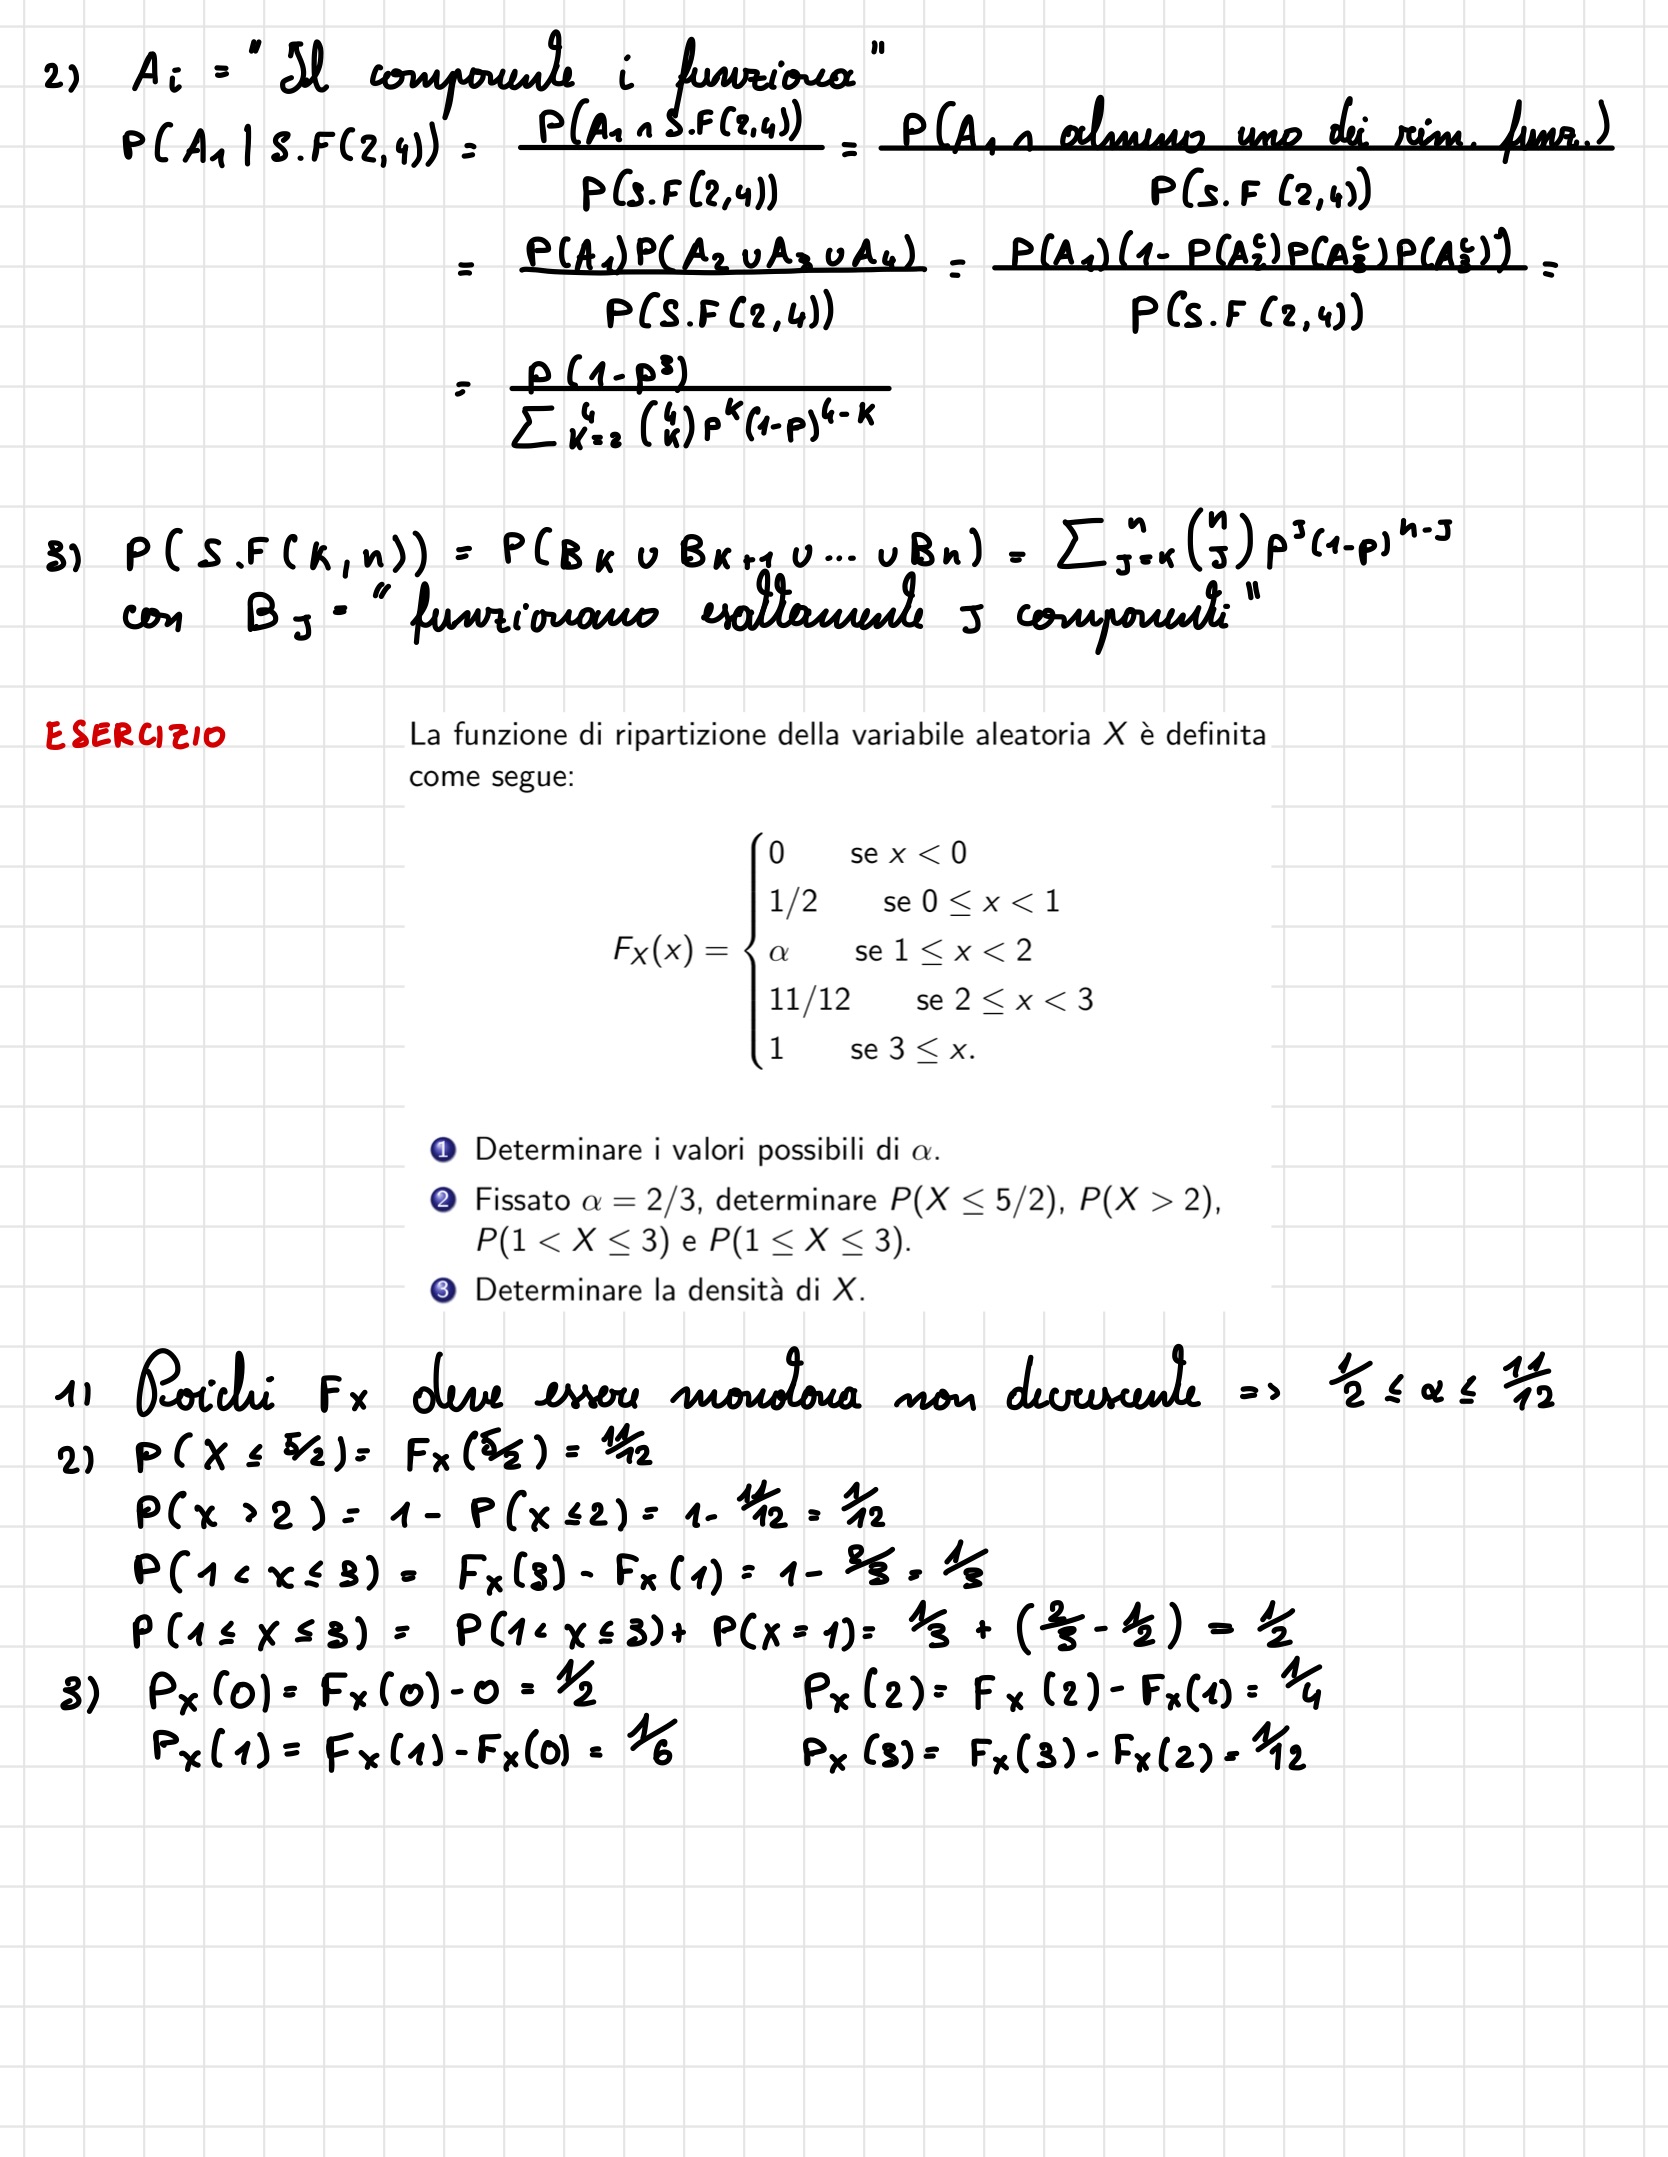 2) Ai = "Il componente i funziona"
P(A1 | S.F(2,4)) = P(A1 ∩ S.F(2,4)) / P(S.F(2,4)) = P(A1 ∩ almeno uno dei rim. funz.) / P(S.F(2,4))
= P(A1)P(A2 ∪ A3 ∪ A4) / P(S.F(2,4)) = P(A1)(1 - P(A2^c)P(A3^c)P(A3^c)) / P(S.F(2,4)) =
= p(1-p^3) / ∑_{K=2}^{4} (4 K) p^K (1-p)^{4-K}
3) P(S.F(K,n)) = P(BK ∪ BK+1 ∪ ... ∪ Bn) = ∑_{J=K}^{n} (n J) p^J (1-p)^{n-J}
con BJ = "funzionano esattamente J componenti"
ESERCIZIO
La funzione di ripartizione della variabile aleatoria X è definita
come segue:
0 se x < 0
1/2 se 0 ≤ x < 1
FX(x) = { α se 1 ≤ x < 2
11/12 se 2 ≤ x < 3
1 se 3 ≤ x.
1 Determinare i valori possibili di α.
2 Fissato α = 2/3, determinare P(X ≤ 5/2), P(X > 2),
P(1 < X ≤ 3) e P(1 ≤ X ≤ 3).
3 Determinare la densità di X.
1) Poichè Fx deve essere monotona non decrescente => 1/2 ≤ α ≤ 11/12
2) P(X ≤ 5/2) = Fx(5/2) = 11/12
P(x > 2) = 1 - P(x ≤ 2) = 1 - 11/12 = 1/12
P(1 < x ≤ 3) = Fx(3) - Fx(1) = 1 - 2/3 = 1/3
P(1 ≤ x ≤ 3) = P(1 < x ≤ 3) + P(x = 1) = 1/3 + (2/3 - 1/2) = 1/2
3) Px(0) = Fx(0) - 0 = 1/2 Px(2) = Fx(2) - Fx(1) = 1/4
Px(1) = Fx(1) - Fx(0) = 1/6 Px(3) = Fx(3) - Fx(2) = 1/12